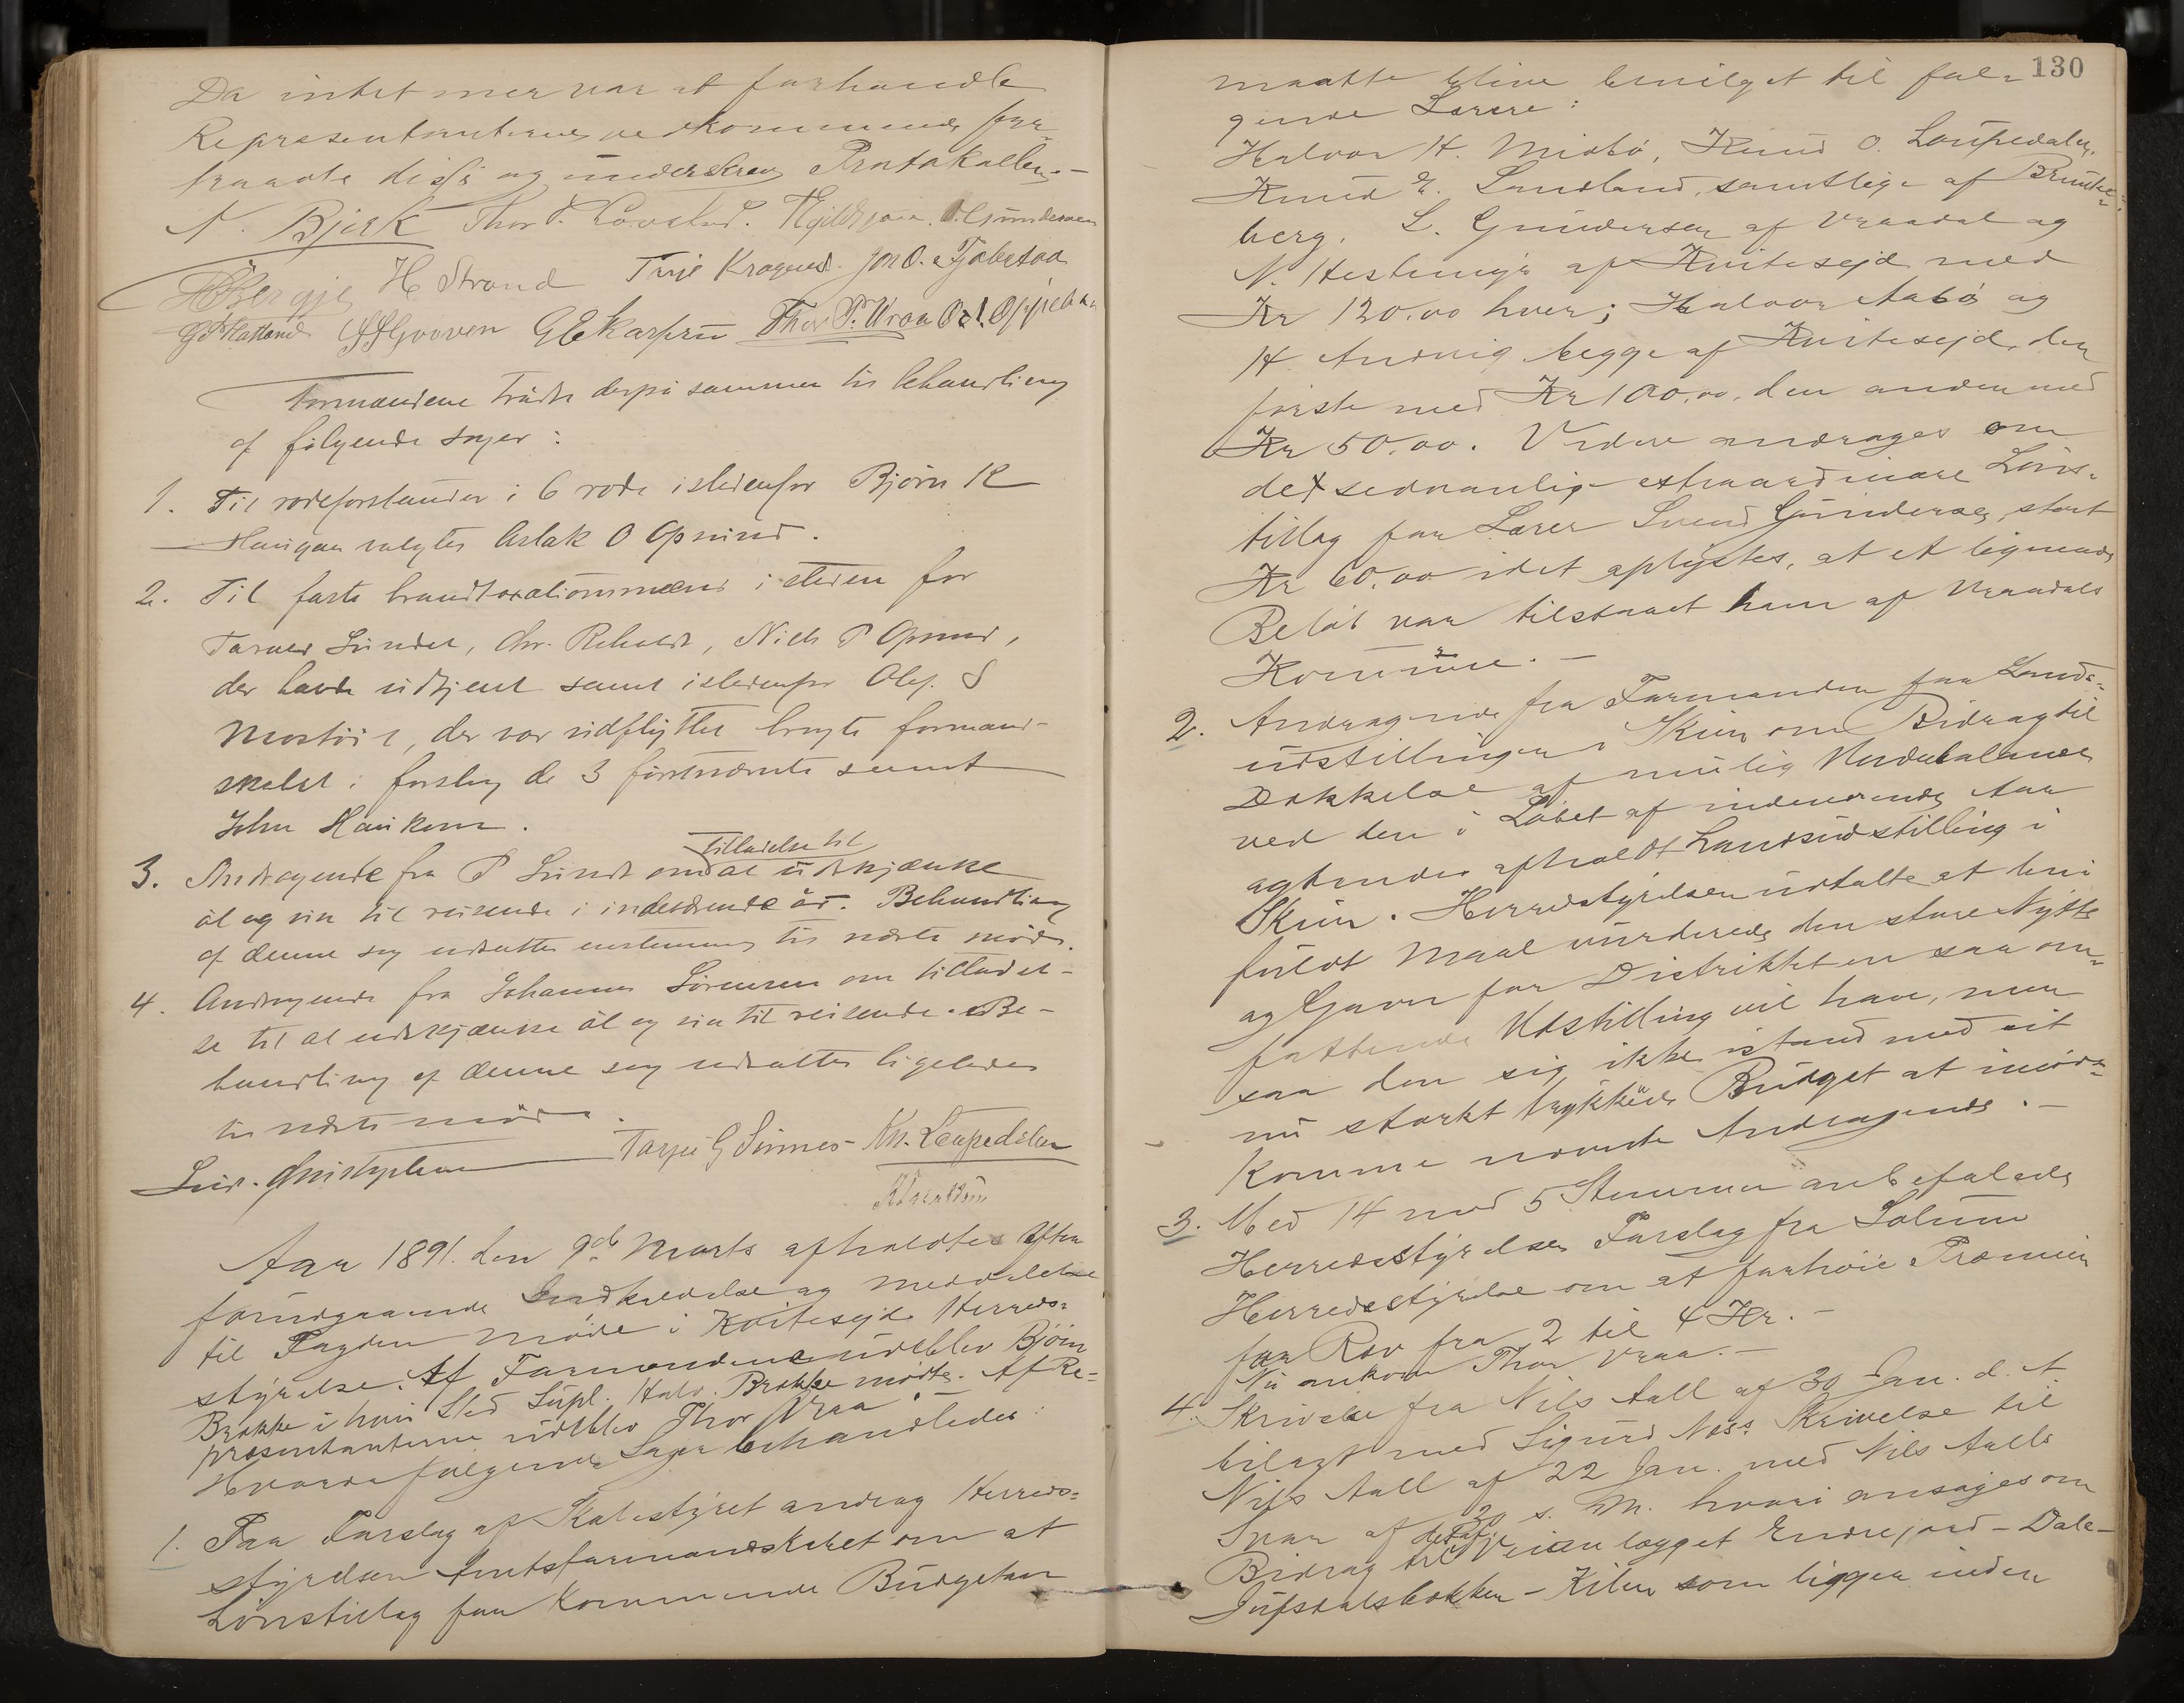 Da intet mer var at forhandle
Representanterne vedkommende fra-
traadte disse og underskrev Protokollen. –
N. Bjerk Thor P. Lovstad. Egild O. Gundersen
Bergje H Strand Terje Kragnes. Jon O. Fjalestad
G P Hatland Gooven G E Karperu Thor P. Vraa
Formændene trådte derpå sammen til behandling
af følgende sager:
1. Til rodeforstander i 6 rode istedenfor Bjørn K
Haugan valgtes Aslak O Opsund.
2. Til faste brandtaxationsmænd i steden for
Tarald Sundet, Chr. Reholdt, Nils P Opsund,
der havde udtjent samt istedenfor Olaf S
Mostøil, der var udflyttet bragte formand-
skabet i forslag de 3 førstnævnte samt
John Haukom.
3. Andragende fra P Lundt om tilladelse til at udskjænke
øl og vin til reisende i indeværende år. Behandling
af denne sag udsattes enstemmig til næste møde.
4. Andragende fra Johannes Sørensen om tilladel-
se til at udskjænke øl og vin til reisende. Be-
handling af denne sag udsattes ligeledes
til næste møde.
Tarjei G Sinnes – Kn. Laupedalen
Aar 1891. den 9de Marts afholdtes efter
forudgaaende Indkaldelse og Meddelelse
til Fogden Møde i Kvitesejd Herreds-
styrelse. Af Formændene udeblev Bjørn
Brokke i hvis Sted Supl. Halv. Brokke mødte. Af Re-
præsentanterne udeblev Thor Vraa.
Hvorda følgende Sager behandledes:
1. Paa Forslag af Skolestyret androg Herreds-
styrelsen Amtsformandskabet om at
Lønstillæg for kommende Budgetaar
130
maatte blive bevilget til føl-
gende Lærere:
Halvor H. Midbø, Knud O. Laupedalen,
Knud E. Landland, samtlige af Brunke-
berg, L. Gundersen af Vraadal og
N. Hestenuje af Kvitesejd med
Kr 120.00 hver; Halvor Aabø og
H. Andvig begge af Kvitesejd, den
første med Kr 100.00, den anden med
Kr 50.00. Videre andrages om
det sedvanlige extraordinære Løns-
tillæg for Lærer Svend Gundersen, stort
Kr 60.00 idet oplystes, at et lignende
Beløb var tilstaaet ham af Vraadals
Kommune. –
2. Andragende fra Formanden for Lands-
udstillingen i Skien om Bidrag til
Dækkelse af mulig Underbalance
ved den i Løbet af indeværende Aar
agtendes afholdt Landsudstilling i
Skien. Herredstyrelsen udtalte at den i
fuldt Maal vurderede den store Nytte
og Gavn for Distriktet en saa om-
fattende Udstilling vil have, men
saa den sig ikke istand med sit
nu stærkt trykkede Budget at imøde-
komme nævnte Andragende. –
3. Med 14 mod 5 Stemmer anbefalede
Herredsstyrelsen Forslag fra Solum
Herredsstyrelse om at forhøie Præmien
for Rev fra 2 til 4 Kr. –
Nu ankom Thor Vraa. –
4. Skrivelse fra Nils Aall af 30 Jan. d. A.
bilagt med Sigurd Næs Skrivelse til
Nils Aall af 22 Jan. med Nils Aalls
Svar af 30 s. M. hvori ansøges om
Bidrag til Veianlægget Endrejord – Dale-
Jufsdalsbakken – Kilen som ligger inden